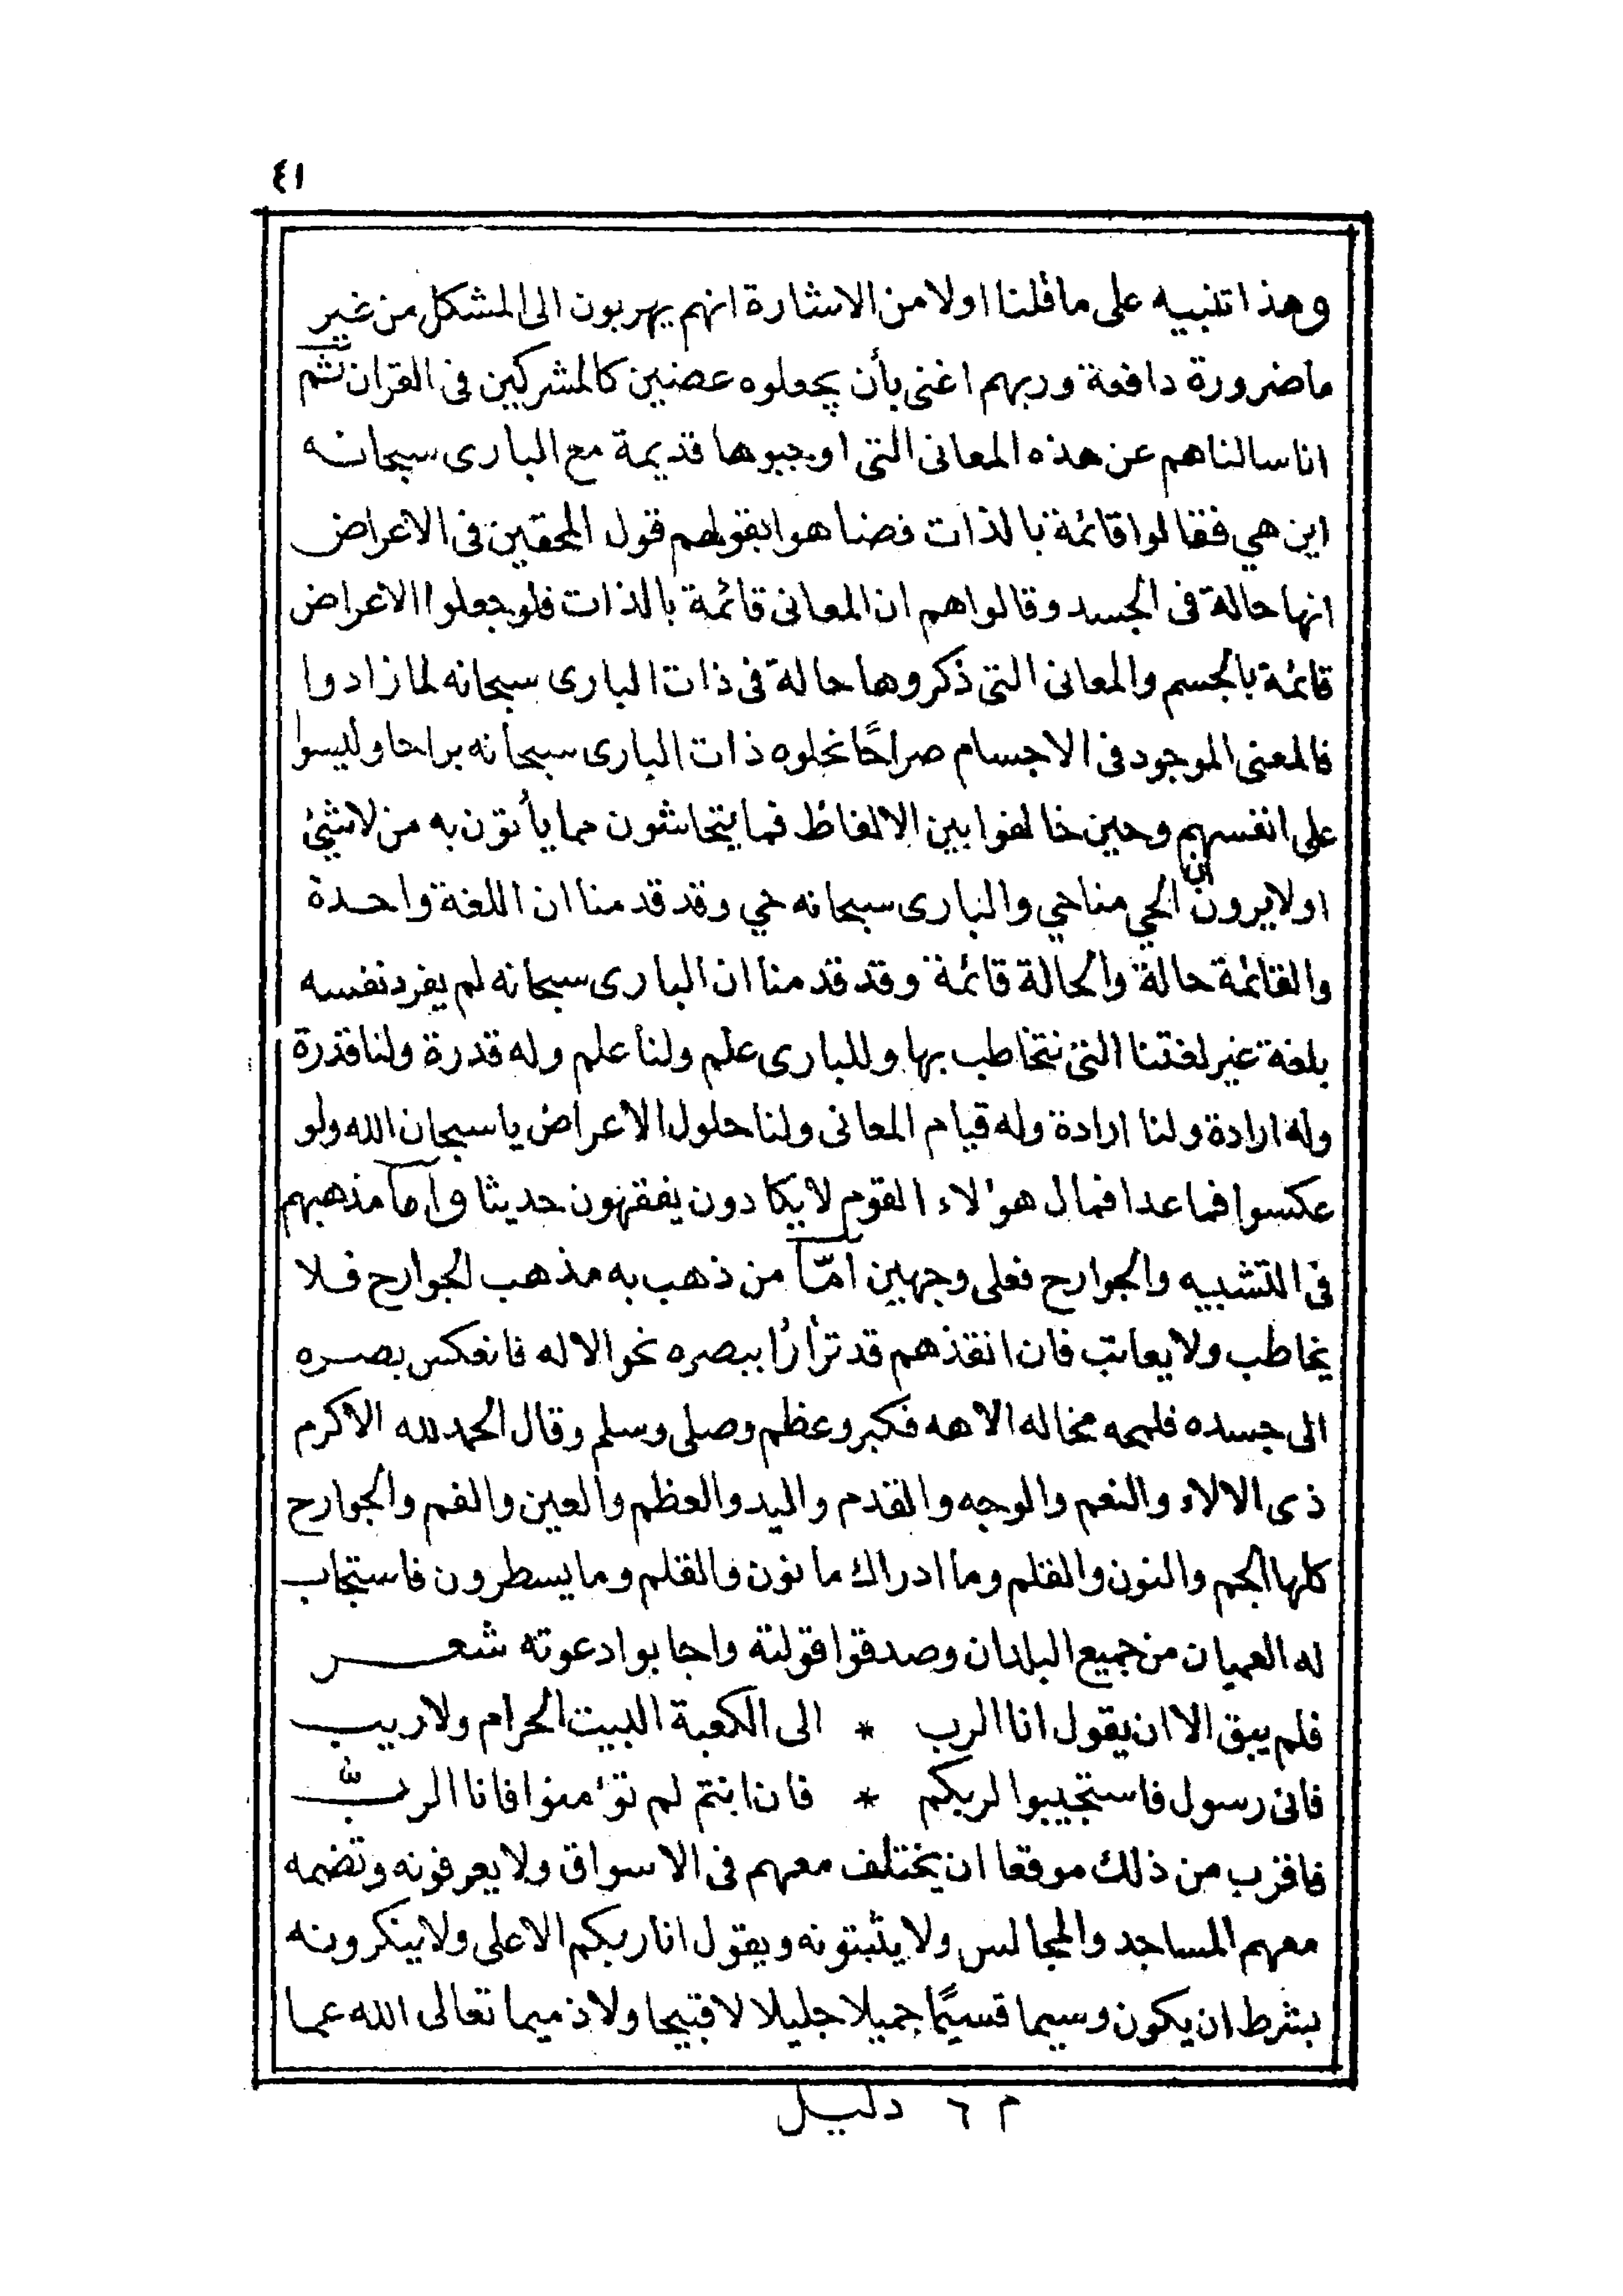 ٤١
وهذا تنبيه على ما قلنا اولا من الاشارة انهم يهربون الى المشكل من غير
ما ضرورة دافعة وربهم اغنى بأن يجعلوه عضين كالمشركين فى القران ثم
انا سالناهم عن هذه المعانى التى اوجبوها قديمة مع البارى سبحانه
اين هي فقالوا قائمة بالذات فضاهوا بقولهم قول المحقين فى الاعراض
انها حالة فى الجسد وقالوا هم ان المعانى قائمة بالذات فلو جعلوا الاعراض
قائمة بالجسم والمعانى التى ذكروها حالة فى ذات البارى سبحانه لما زادوا
فالمعنى الموجود فى الاجسام صراحًا نحلوه ذات البارى سبحانه براحا وليسوا
على انفسهم وحين خالفوا بين الالفاظ فما يتحاشون مما يأتون به من لاشيئ
اولا يرون ان الحي مناحي والبارى سبحانه حي وقد قدمنا ان اللغة واحدة
والقائمة حالة والحالة قائمة وقد قدمنا ان البارى سبحانه لم يفرد نفسه
بلغة غير لغتنا التى نتخاطب بها وللبارى علم ولنا علم وله قدرة ولنا قدرة
وله ارادة ولنا ارادة وله قيام المعانى ولنا حلول الاعراض يا سبحان الله ولو
عكسوا فما عدا فمال هؤلاء القوم لا يكادون يفقهون حديثا واما مذهبهم
فى التشبيه والجوارح فعلى وجهين امّا من ذهب به مذهب الجوارح فلا
يخاطب ولا يعاتب فان انقذهم قد ترأرأ ببصره نحو الاله فانعكس بصره
الى جسده فلمحه فخاله الاهه فكبر وعظم وصلى وسلم وقال الحمد لله الاكرم
ذى الالاء والنعم والوجه والقدم واليد والعظم والعين والفم والجوارح
كلها الجم والنون والقلم وما ادراك ما نون والقلم وما يسطرون فاستجاب
له العميان من جميع البلدان وصدقوا قولته واجابوا دعوته شعر
فلم يبق الا ان يقول انا الرب * الى الكعبة البيت الحرام ولا ريب
فانى رسول فاستجيبوا لربكم * فان انتم لم تؤمنوا فانا الربُّ
فاقرب من ذلك موقعا ان يختلف معهم فى الاسواق ولا يعرفونه وتضمه
معهم المساجد والمجالس ولا يثبتونه ويقول انا ربكم الاعلى ولا ينكرونه
بشرط ان يكون وسيما قسيمًا جميلا جليلا لا قبيحا ولا ذميما تعالى الله عما
م ٦ دليل